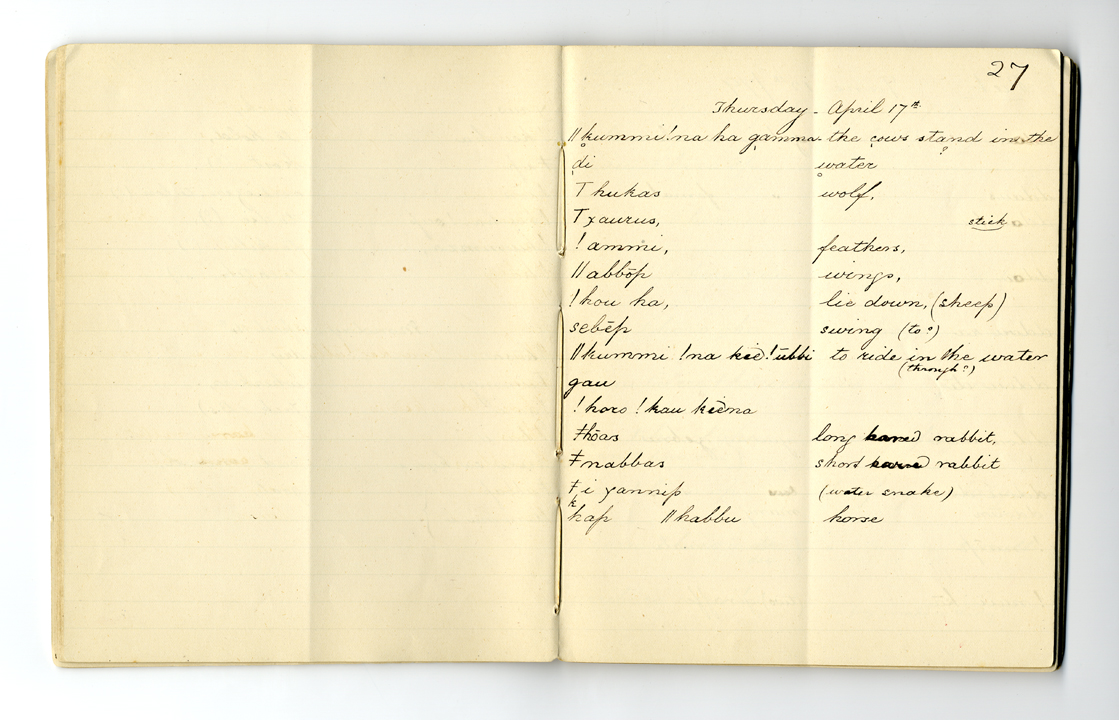 27
Thursday - April 17th
ǁkummi !na ha gamma - the cows stand in the
di water
Thukas wolf.
Tχaurus, stick
!ammi, feathers,
ǁabbōp wings,
!hou ha, lie down, (sheep)
sebēp swing (to?)
ǁkummi !na !ubbi to ride in the water
(through?)
gau
!horo !kau
ǂhōas long eared rabbit,
ǂnabbas short eared rabbit
ǂi χannip (water snake)
k
kap ǁhabbu horse